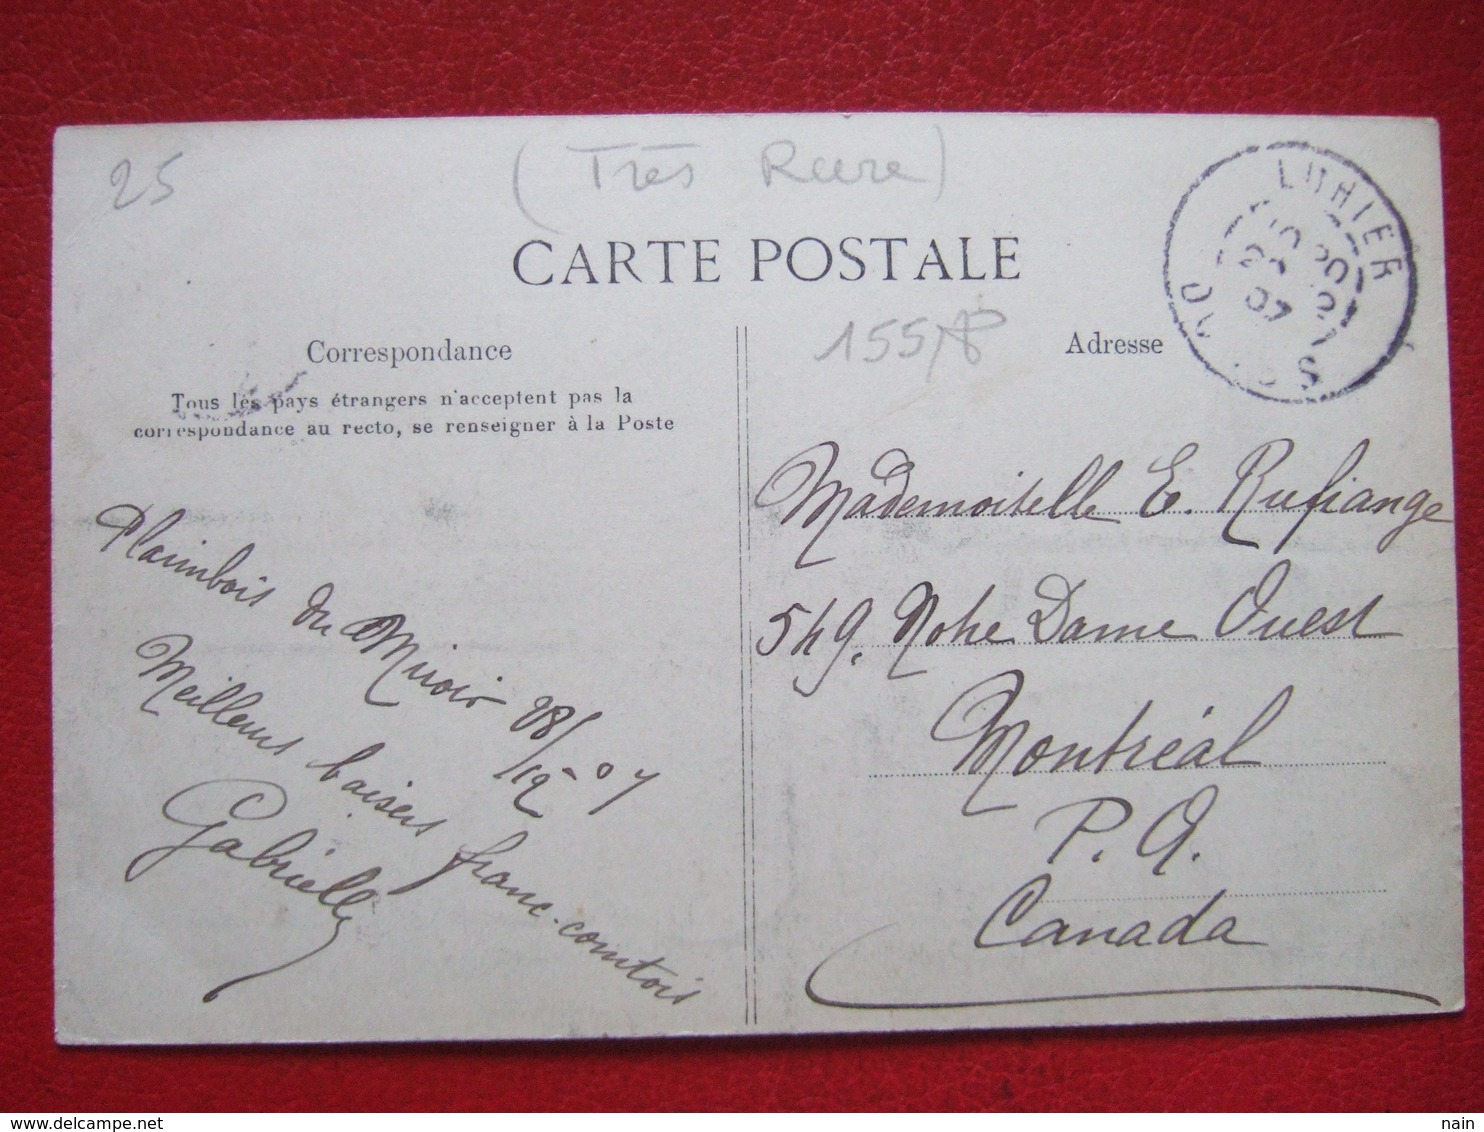 25
(Très Rare)
CARTE POSTALE
LUHIER
Correspondance
155
Adresse
Tous les pays étrangers n'acceptent pas la
correspondance au recto, se renseigner à la Poste
Plaimbois du Miroir 28/12-07
Meilleurs baisers franc-comtois
Gabrielle
Mademoiselle E. Rufiange
549. Notre Dame Ouest
Montréal
P. Q.
Canada
nain
delcampe.net